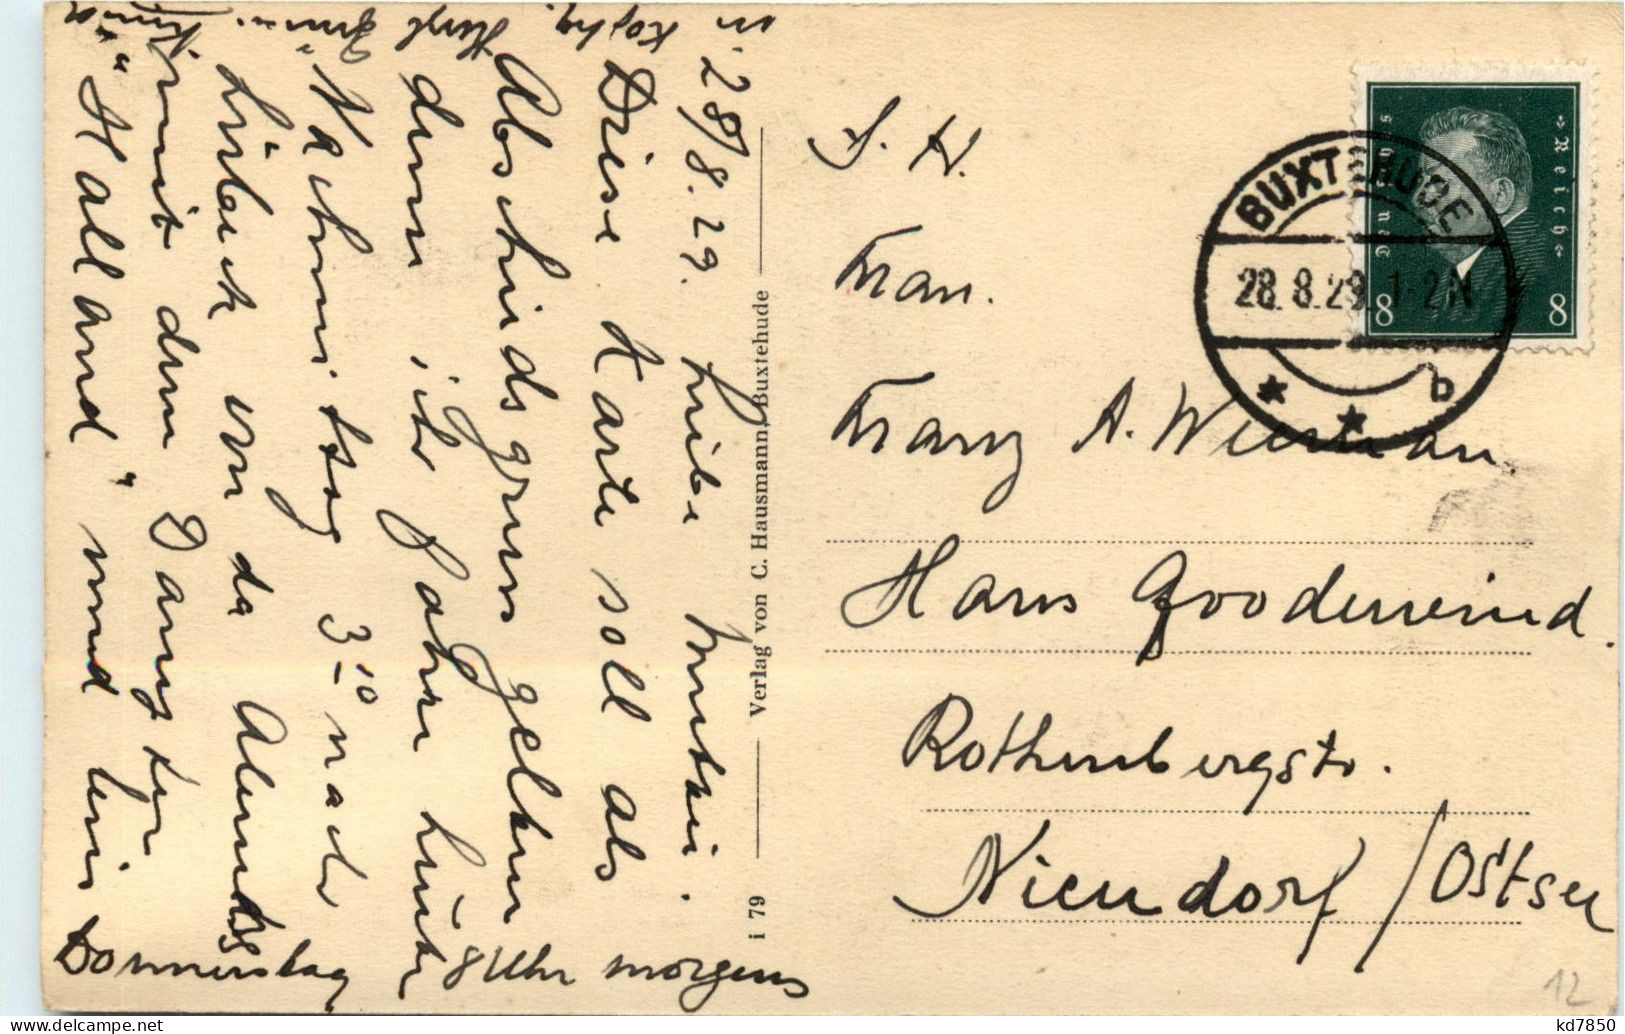 28/8.29. Liebe Mutti.
Diese Karte soll als
Abschiedsgruss gelten
denn ich fahre heute
Nachmittag 3 10 nach
Lübeck von da Abends 8
mit dem Dampfer
"Halland" und bin
Donnerstag 8 Uhr morgens
in
i 79
Verlag von C. Hausmann, Buxtehude
Deutsches «Reich»
8 8
BUXTEHUDE
28.8.29. 1-2N
* * b
S. H.
Frau.
Franz A.
Hans
Niendorf / Ostsee
12
kd7850